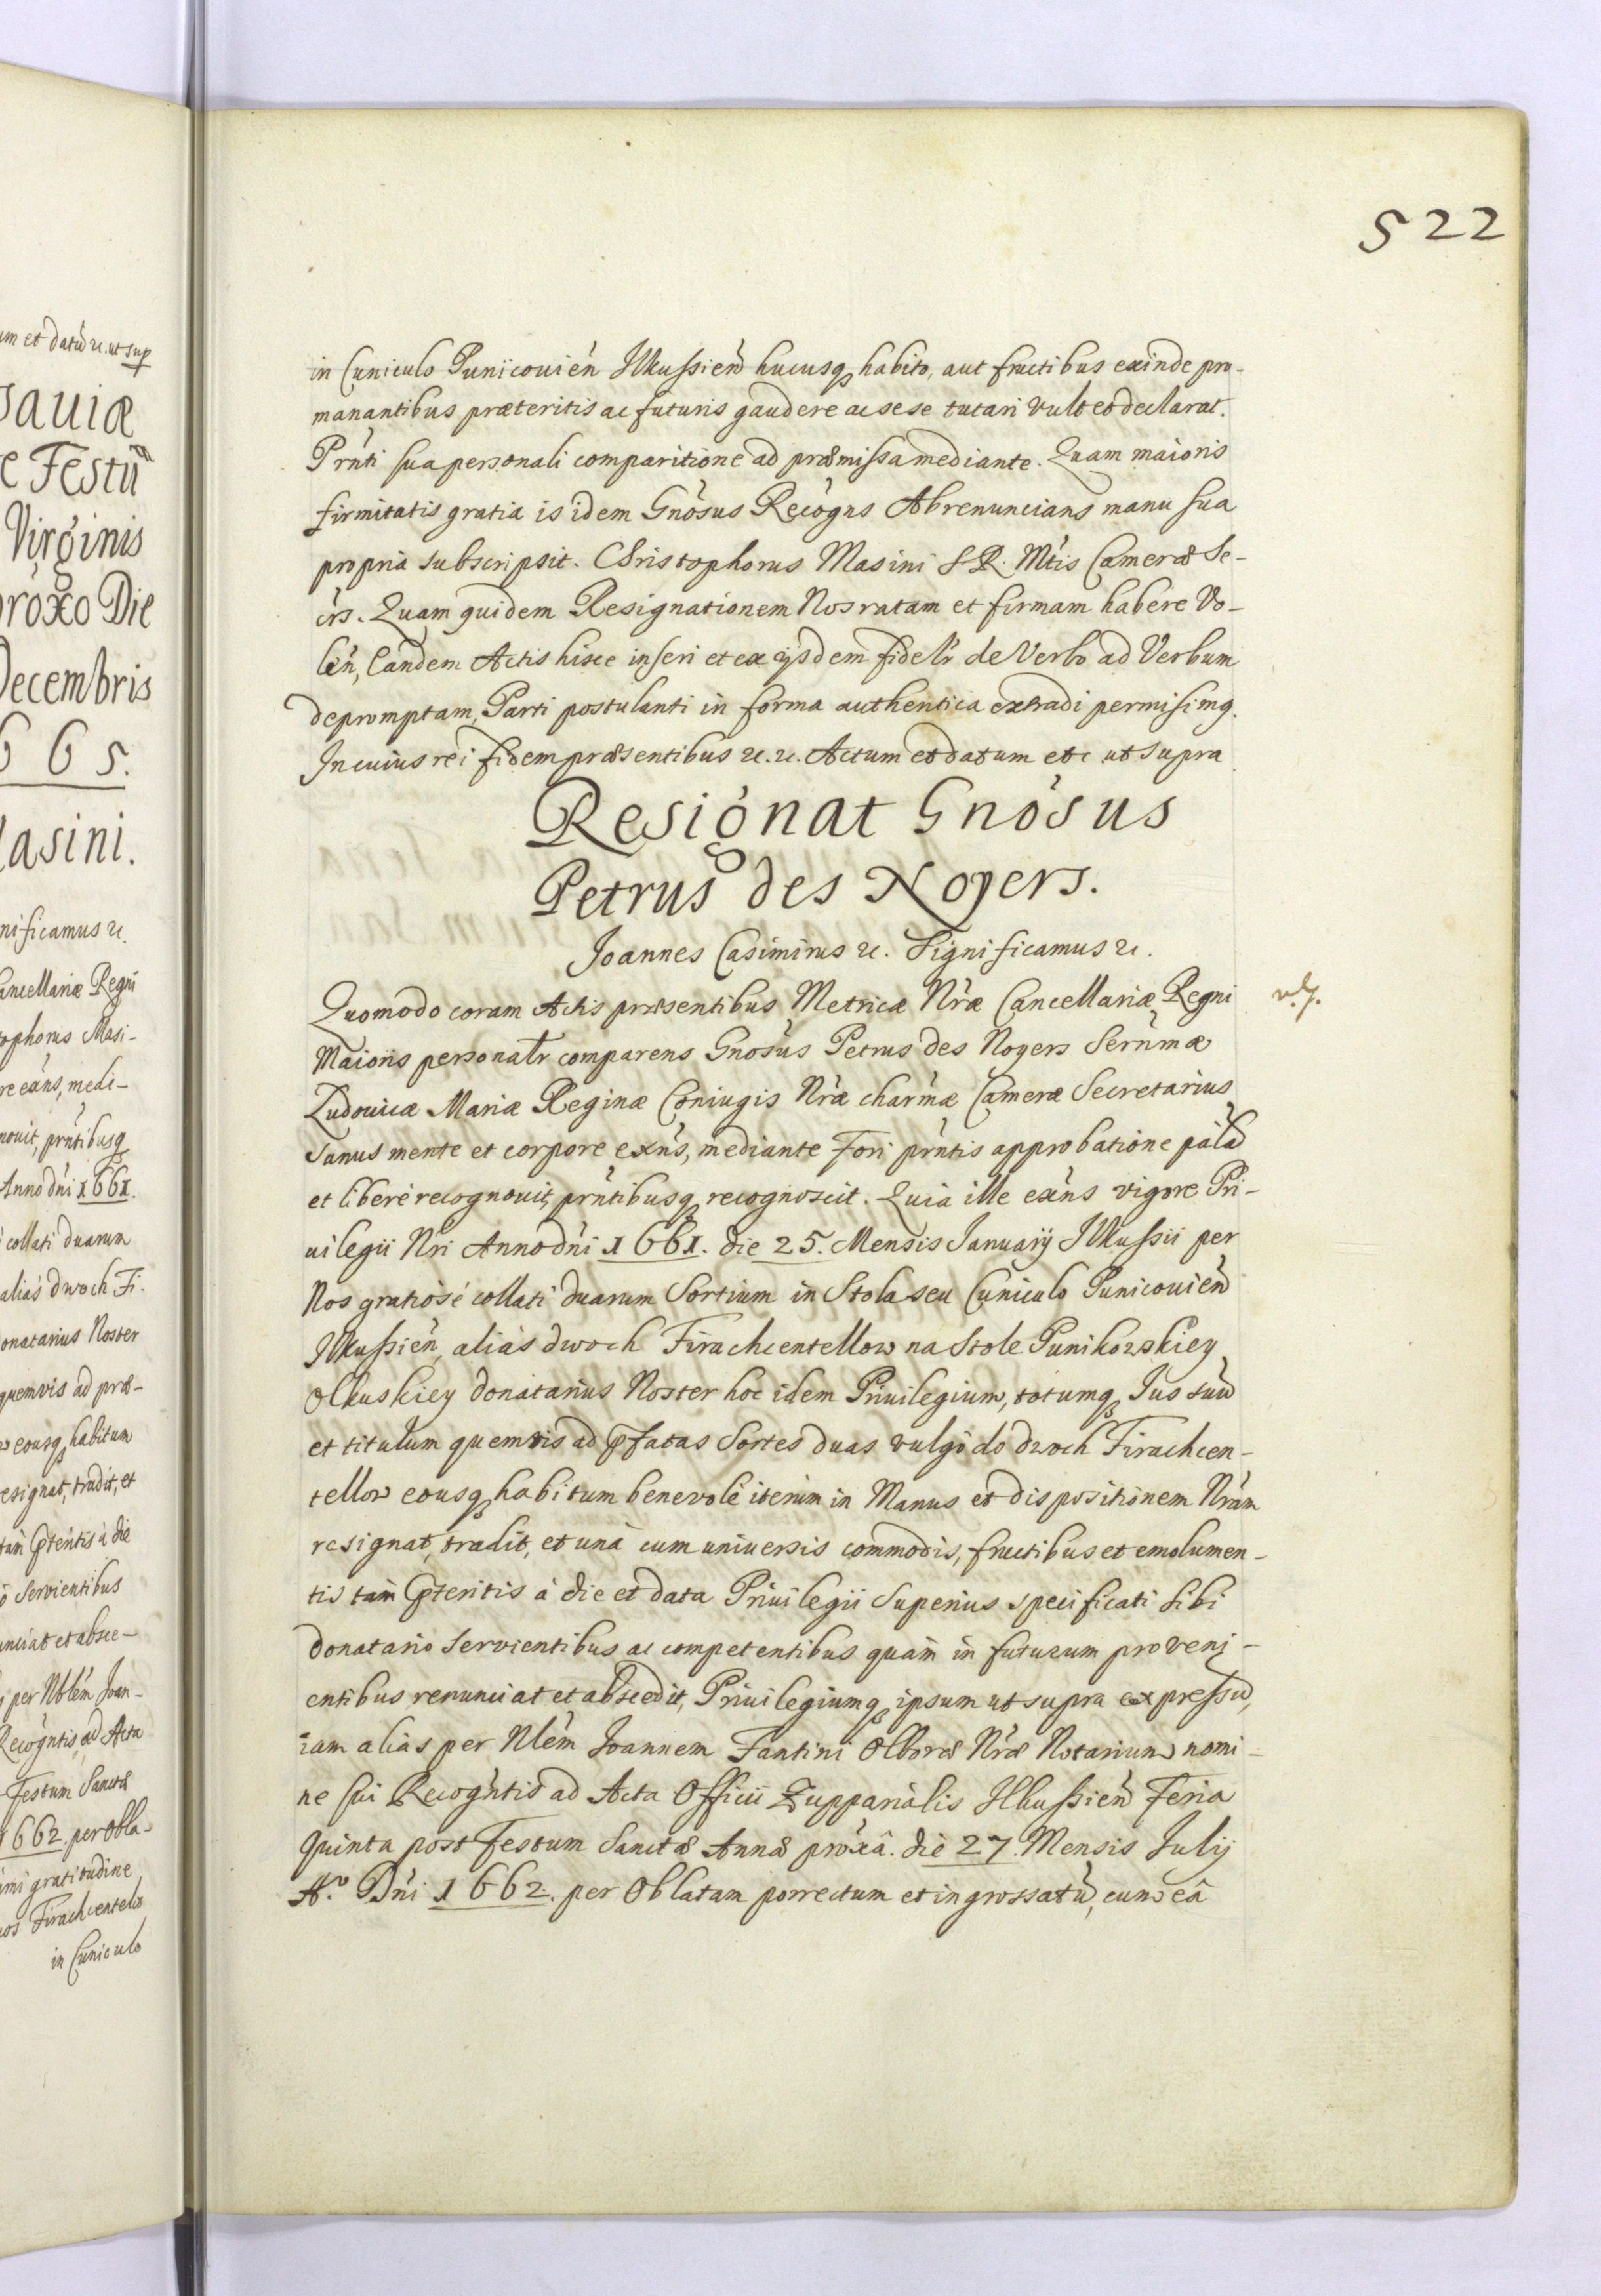 522
in Cuniculo Punicouień Ilkussień hucusq habito, aut fructibus exinde pro-
manantibus præteritis ac futuris gaudere ac sese tutari vult et declarat.
Prńti sua personali comparitione ad præmissa mediante. Quam maioris
firmitatis gratia is idem Gnosus Recogns Abrenuncians manu sua
propria subscripsit. Christophorus Masini S. R. Mtis Cameræ Se-
crs. Quam quidem Resignationem Nos ratam et firmam habere Vo-
len, Eandem Actis hisce inseri et ex ijsdem fidelr de Verbo ad Verbum
depromptam, Parti postulanti in forma authentica extradi permisimq.
In cuius rei fidem præsentibus &c. &c. Actum et datum etc ut supra
Resignat Gnosus
Petrus des Noyers.
Joannes Casimirus &c. Significamus &c.
Quomodo coram Actis præsentibus Metricæ Nræ Cancellariæ Regni
Maioris personalr comparens Gnosus Petrus des Nogers Sernmæ
Ludouicæ Mariæ Reginæ Coniugis Nræ charmæ Cameræ Secretarius
sanus mente et corpore exns, mediante Fori prntis approbatione palã
et liberè recognouit, prntibusq recognoscit. Quia ille exns vigore Pri-
uilegii Nri Anno dni 1661. die 25. Mensis January Ilkussii per
Nos gratiosè collati duarum Sortium in Stola seu Cuniculo Punicouień
Ilkussień, aliàs dwoch Firachcentellow na Stole Punikowskiey
Olkuskiey donatarius Noster hoc idem Priuilegium, totumq Ius suũ
et titulum quemvis ad pfatas Sortes duas vulgò do dwoch Firachcen-
tellow eousq habitum benevolè iterum in Manus et dispositionem Nram
resignat, tradit, et unà cum uniuersis commodis, fructibus et emolumen-
tis tam pteritis à die et data Priuilegii Superius specificati sibi
donatario servientibus ac competentibus quàm in futurum proveni-
entibus renunciat et abscedit, Priuilegiumq ipsum ut supra expressũ,
iam alias per Nlem Joannem Fantini Olboræ Nræ Notarium nomi-
ne sui Recogntis ad Acta Officii Zupparialis Ilkussień Feria
quinta post Festum Sanctæ Annæ proxâ. die 27. Mensis July
Aº. Dni 1662. per Oblatam porrectum et ingrossatũ, cum eâ
um et datũ &c. ut sup
e Festũ
Virginis
Die
Decembris
665.
asini.
nificamus &c.
ancellariæ Regni
ophorus Masi-
re exns, medi-
nouit, prntibusq
Anno dni 1661.
collati duarum
aliàs dwoch Fi-
onatarius Noster
quemvis ad præ-
eousq habitum
esignat, tradit, et
tam pteritis à die
servientibus
unciat et absce-
per Nblem Joan-
Recogntis ad Acta
Festum Sanctæ
1662. per Obla-
imi gratitudine
os Firachcentelo
in Cuniculo